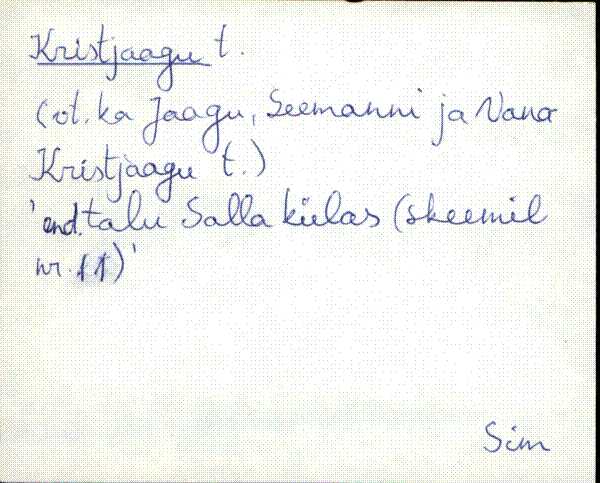 Kristjaagu t.
(vt. ka Jaagu, Seemanni ja Vana
Kristjaagu t.)
'end. talu Salla külas (skeemil
nr. 11)'
Sim